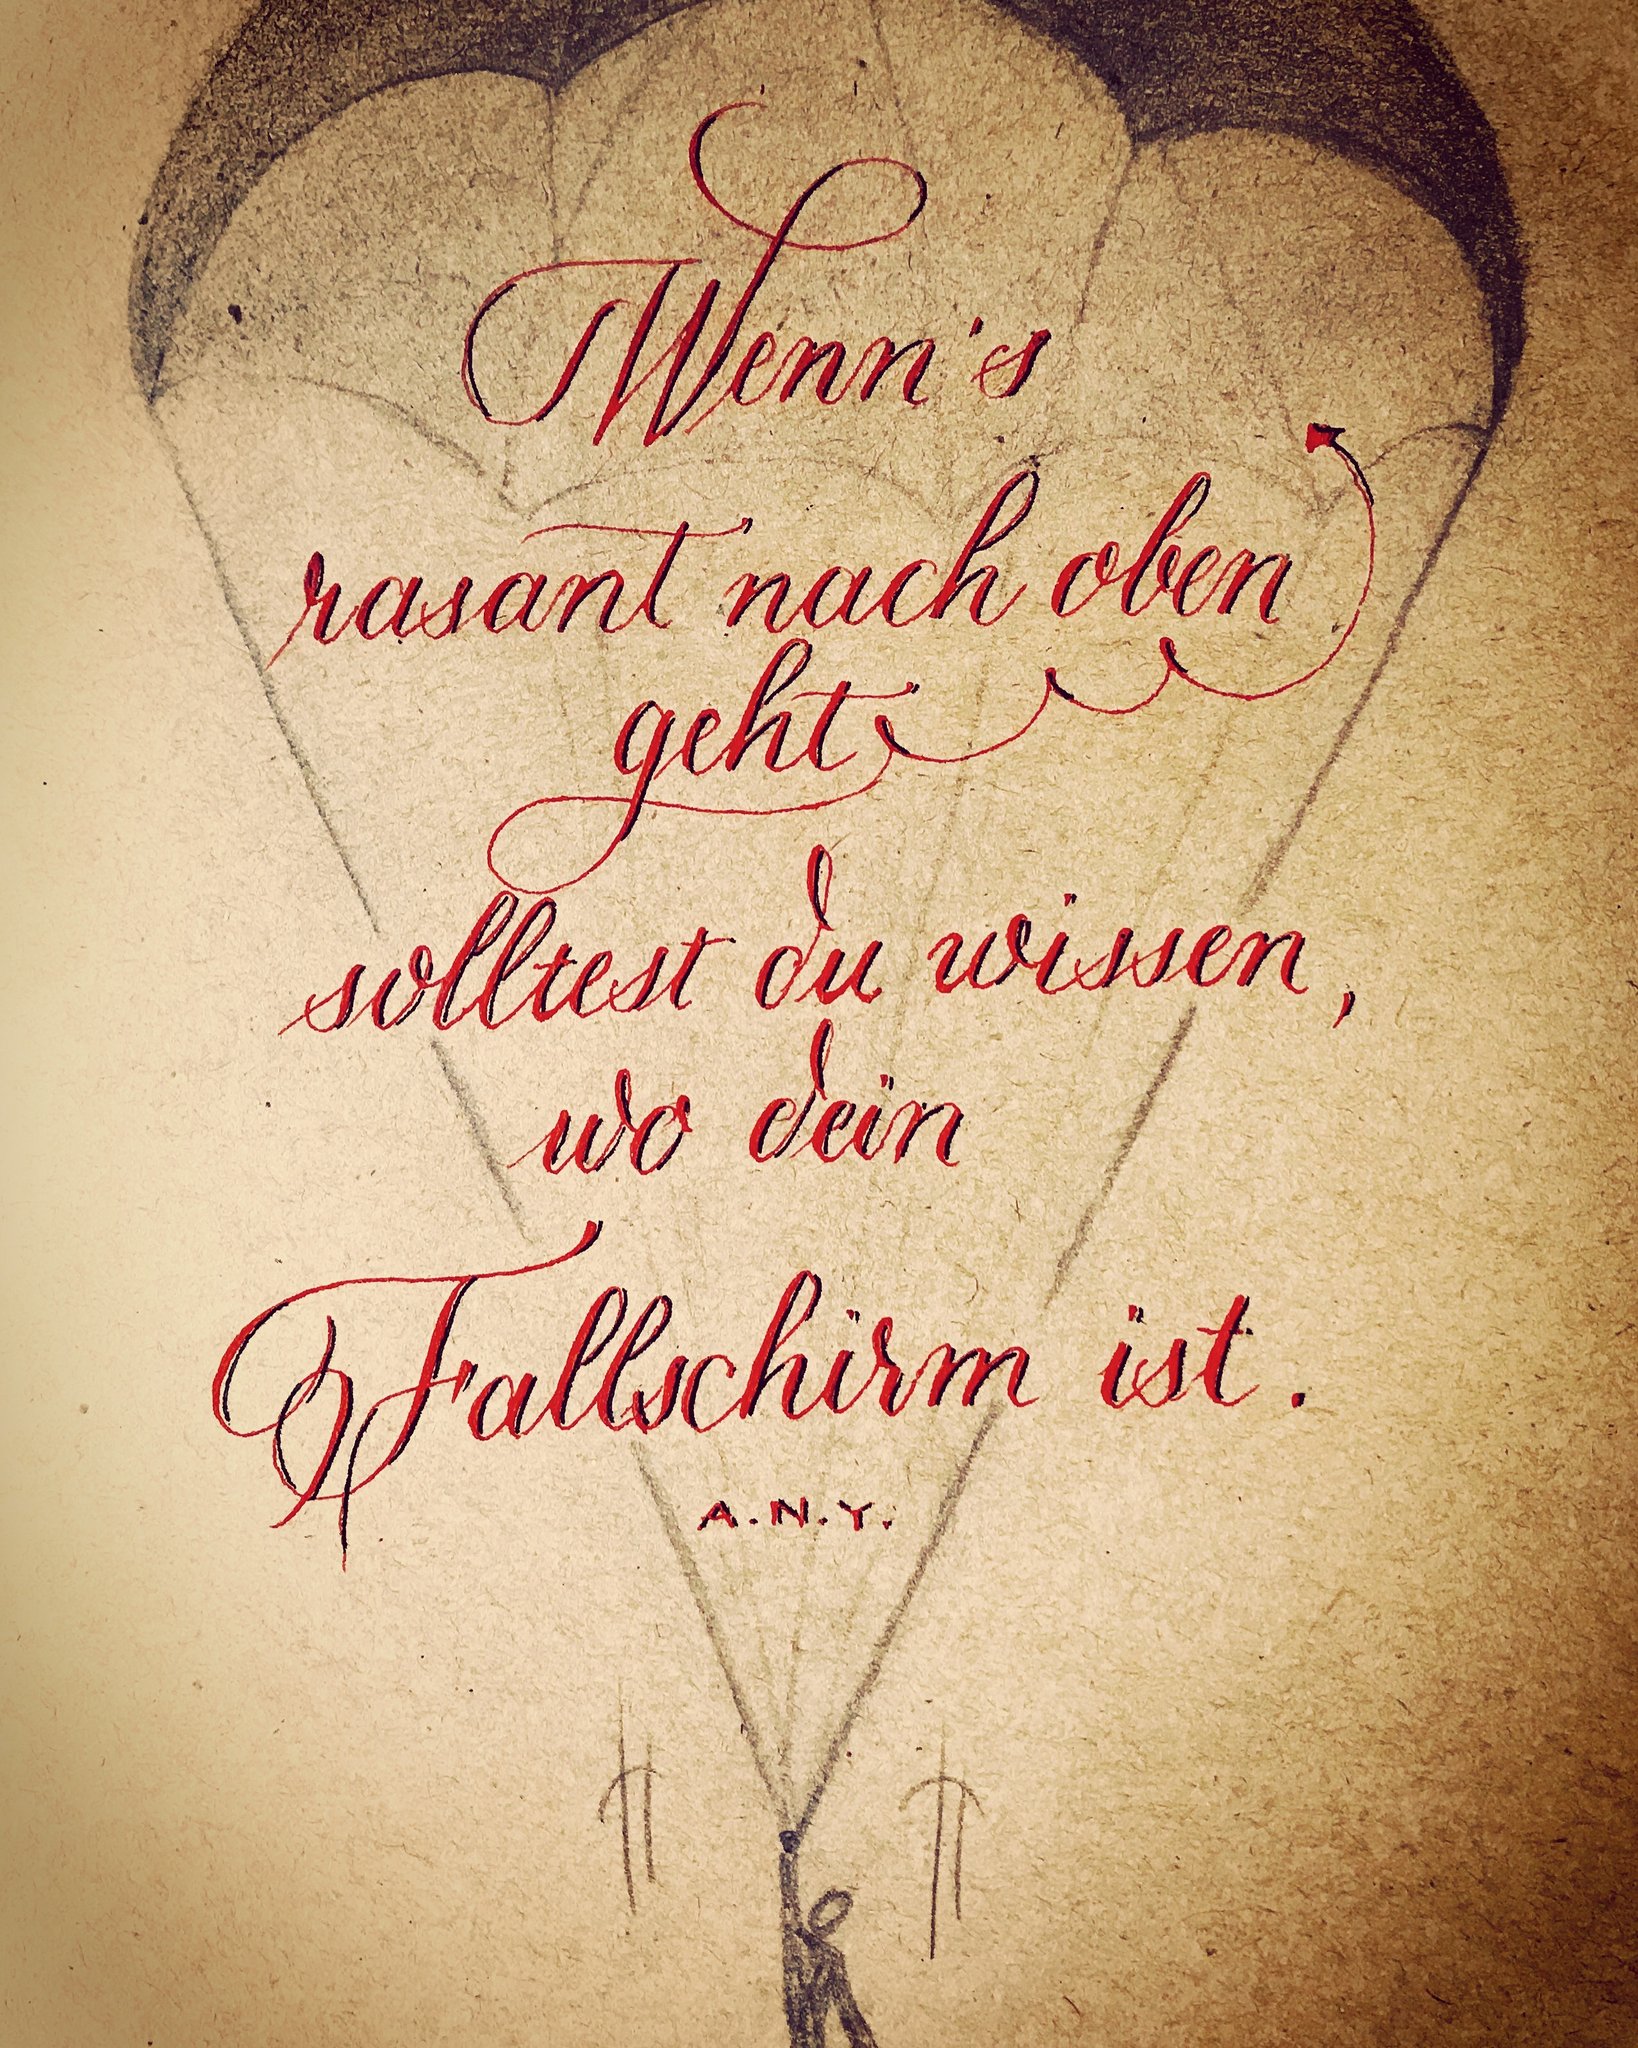 Wenn's
rasant nach oben
geht
solltest du wissen,
wo dein
Fallschirm ist.
A.N.Y.